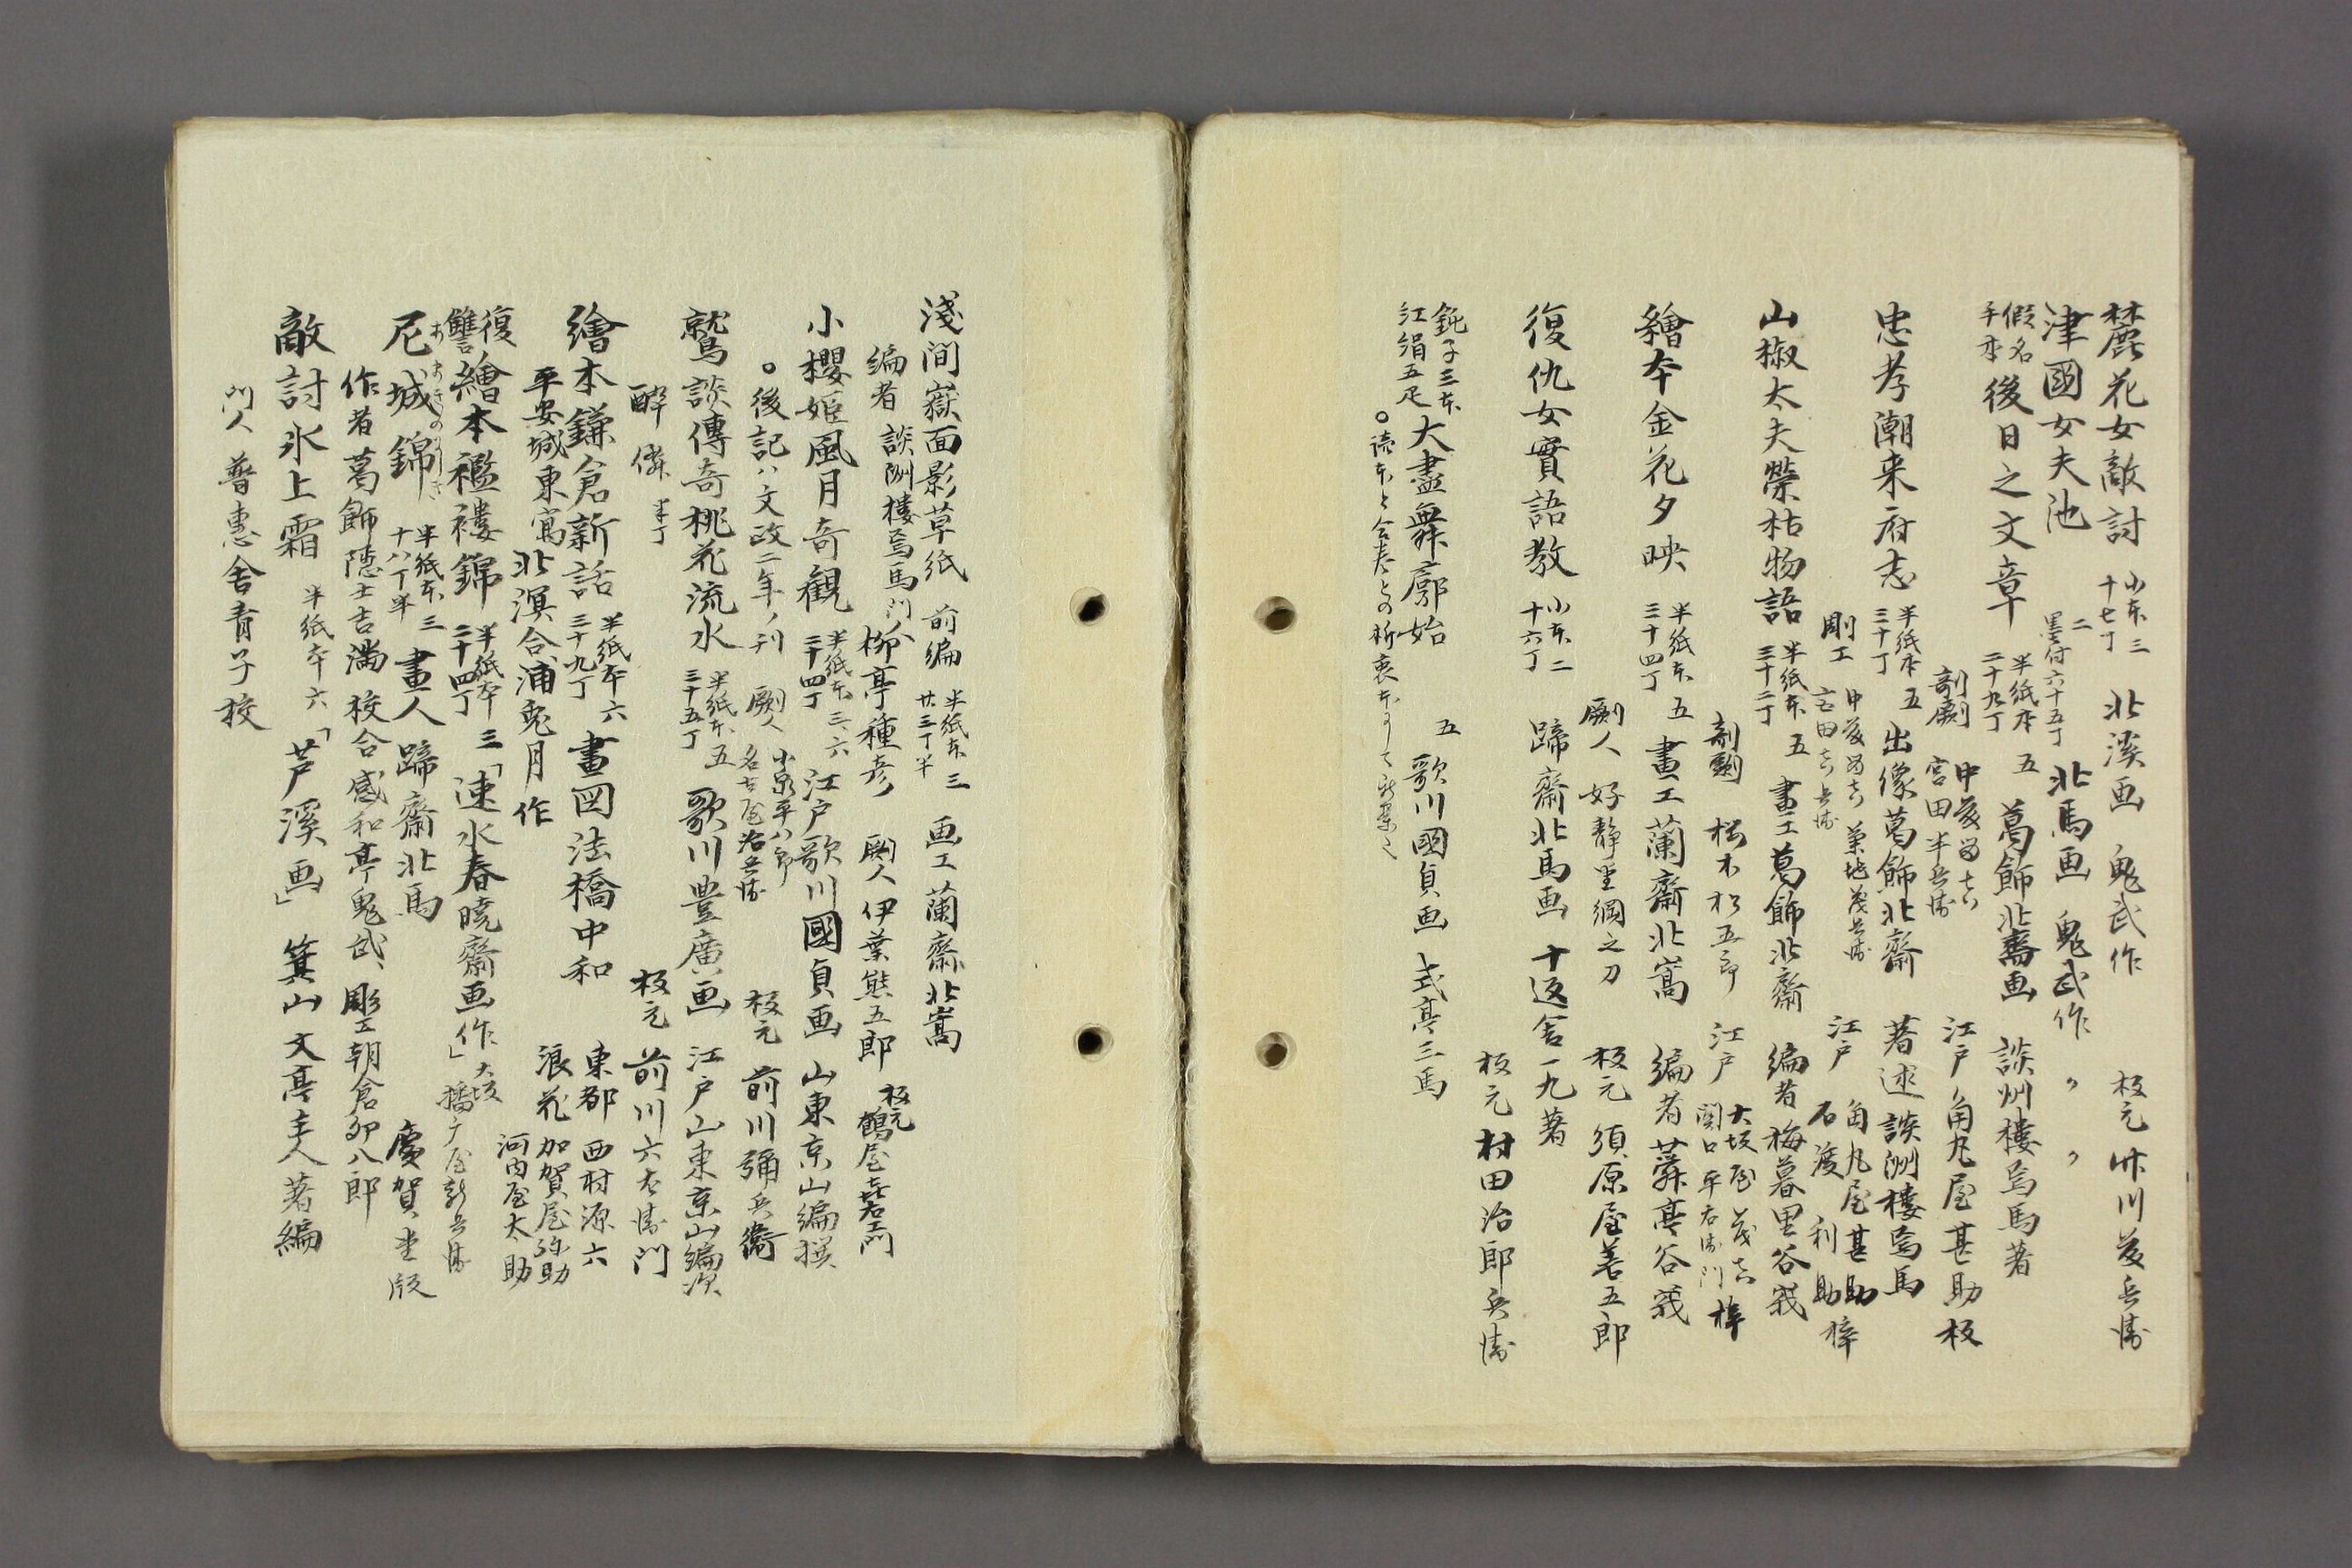 麓花女敵討 小本三 十七丁 北溪画 鬼武作 板元 竹川藤兵衛
津國女夫池 二 墨付六十五丁 北馬画 鬼武作 〃 〃
假名手本 後日之文章 半紙本 二十九丁 五 葛飾北斎画 談洲樓焉馬著
剞劂 中藤留吉 宮田半兵衛 江戸 角丸屋甚助板
忠孝潮来府志 半紙本 三十丁 五 出像葛飾北齋 著述談洲樓焉馬
剛工 中藤留吉 菊地茂兵衛 宮田吉兵衛 江戸 角丸屋甚助 石渡利助 梓
山椒太夫榮枯物語 半紙本 三十二丁 五 畫工葛飾北齋 編者梅暮里谷峩
剞劂 松木松五郎 江戸 大坂屋茂吉 関口平右衛門 梓
繪本金花夕映 半紙本 三十四丁 五 畫工蘭齋北嵩 編者蕣亭谷峩
劂人 好静堂綱之刀 板元 須原屋善五郎
復仇女實語教 小本二 十六丁 蹄齋北馬画 十返舎一九著
板元 村田治郎兵衛
鈍子三本 江絹五疋 大盡舞廓始 五 歌川國貞画 式亭三馬
○読本と合巻との折衷本にして
淺間嶽面影草紙 前編 半紙本 廿三丁半 三 画工蘭齋北嵩
編者 談洲樓焉馬門人 柳亭種彦 劂人 伊葉熊五郎 板元 鶴屋喜右衛門
小櫻姫風月奇観 半紙本 三十四丁 三、六 江戸歌川國貞画 山東京山編撰
○後記ハ文政二年ノ刊 劂人 小泉平八郎 名古屋治兵衛 板元 前川彌兵衛
鷲談傳奇桃花流水 半紙本 三十五丁 五 歌川豊廣画 江戸山東京山編次
酔僊 板元 前川六左衛門
繪本鎌倉新話 半紙本 三十九丁 六 畫図法橋中和 東都 西村源六
平安城東寓 北溟合浦兔月作 浪花 加賀屋弥助 河内屋太助
復讐 繪本襤褸錦 半紙本 二十四丁 三 「速水春暁齋画作」 大坂 播广屋新兵衛
尼城錦 半紙本 三 十八丁半 畫人 蹄齋北馬 慶賀堂版
作者葛飾隱士吉満 校合感和亭鬼武、彫工朝倉卯八郎
敵討氷上霜 半紙本 六 「芦溪画」 箕山文亭主人著編
門人 普惠舎青子校